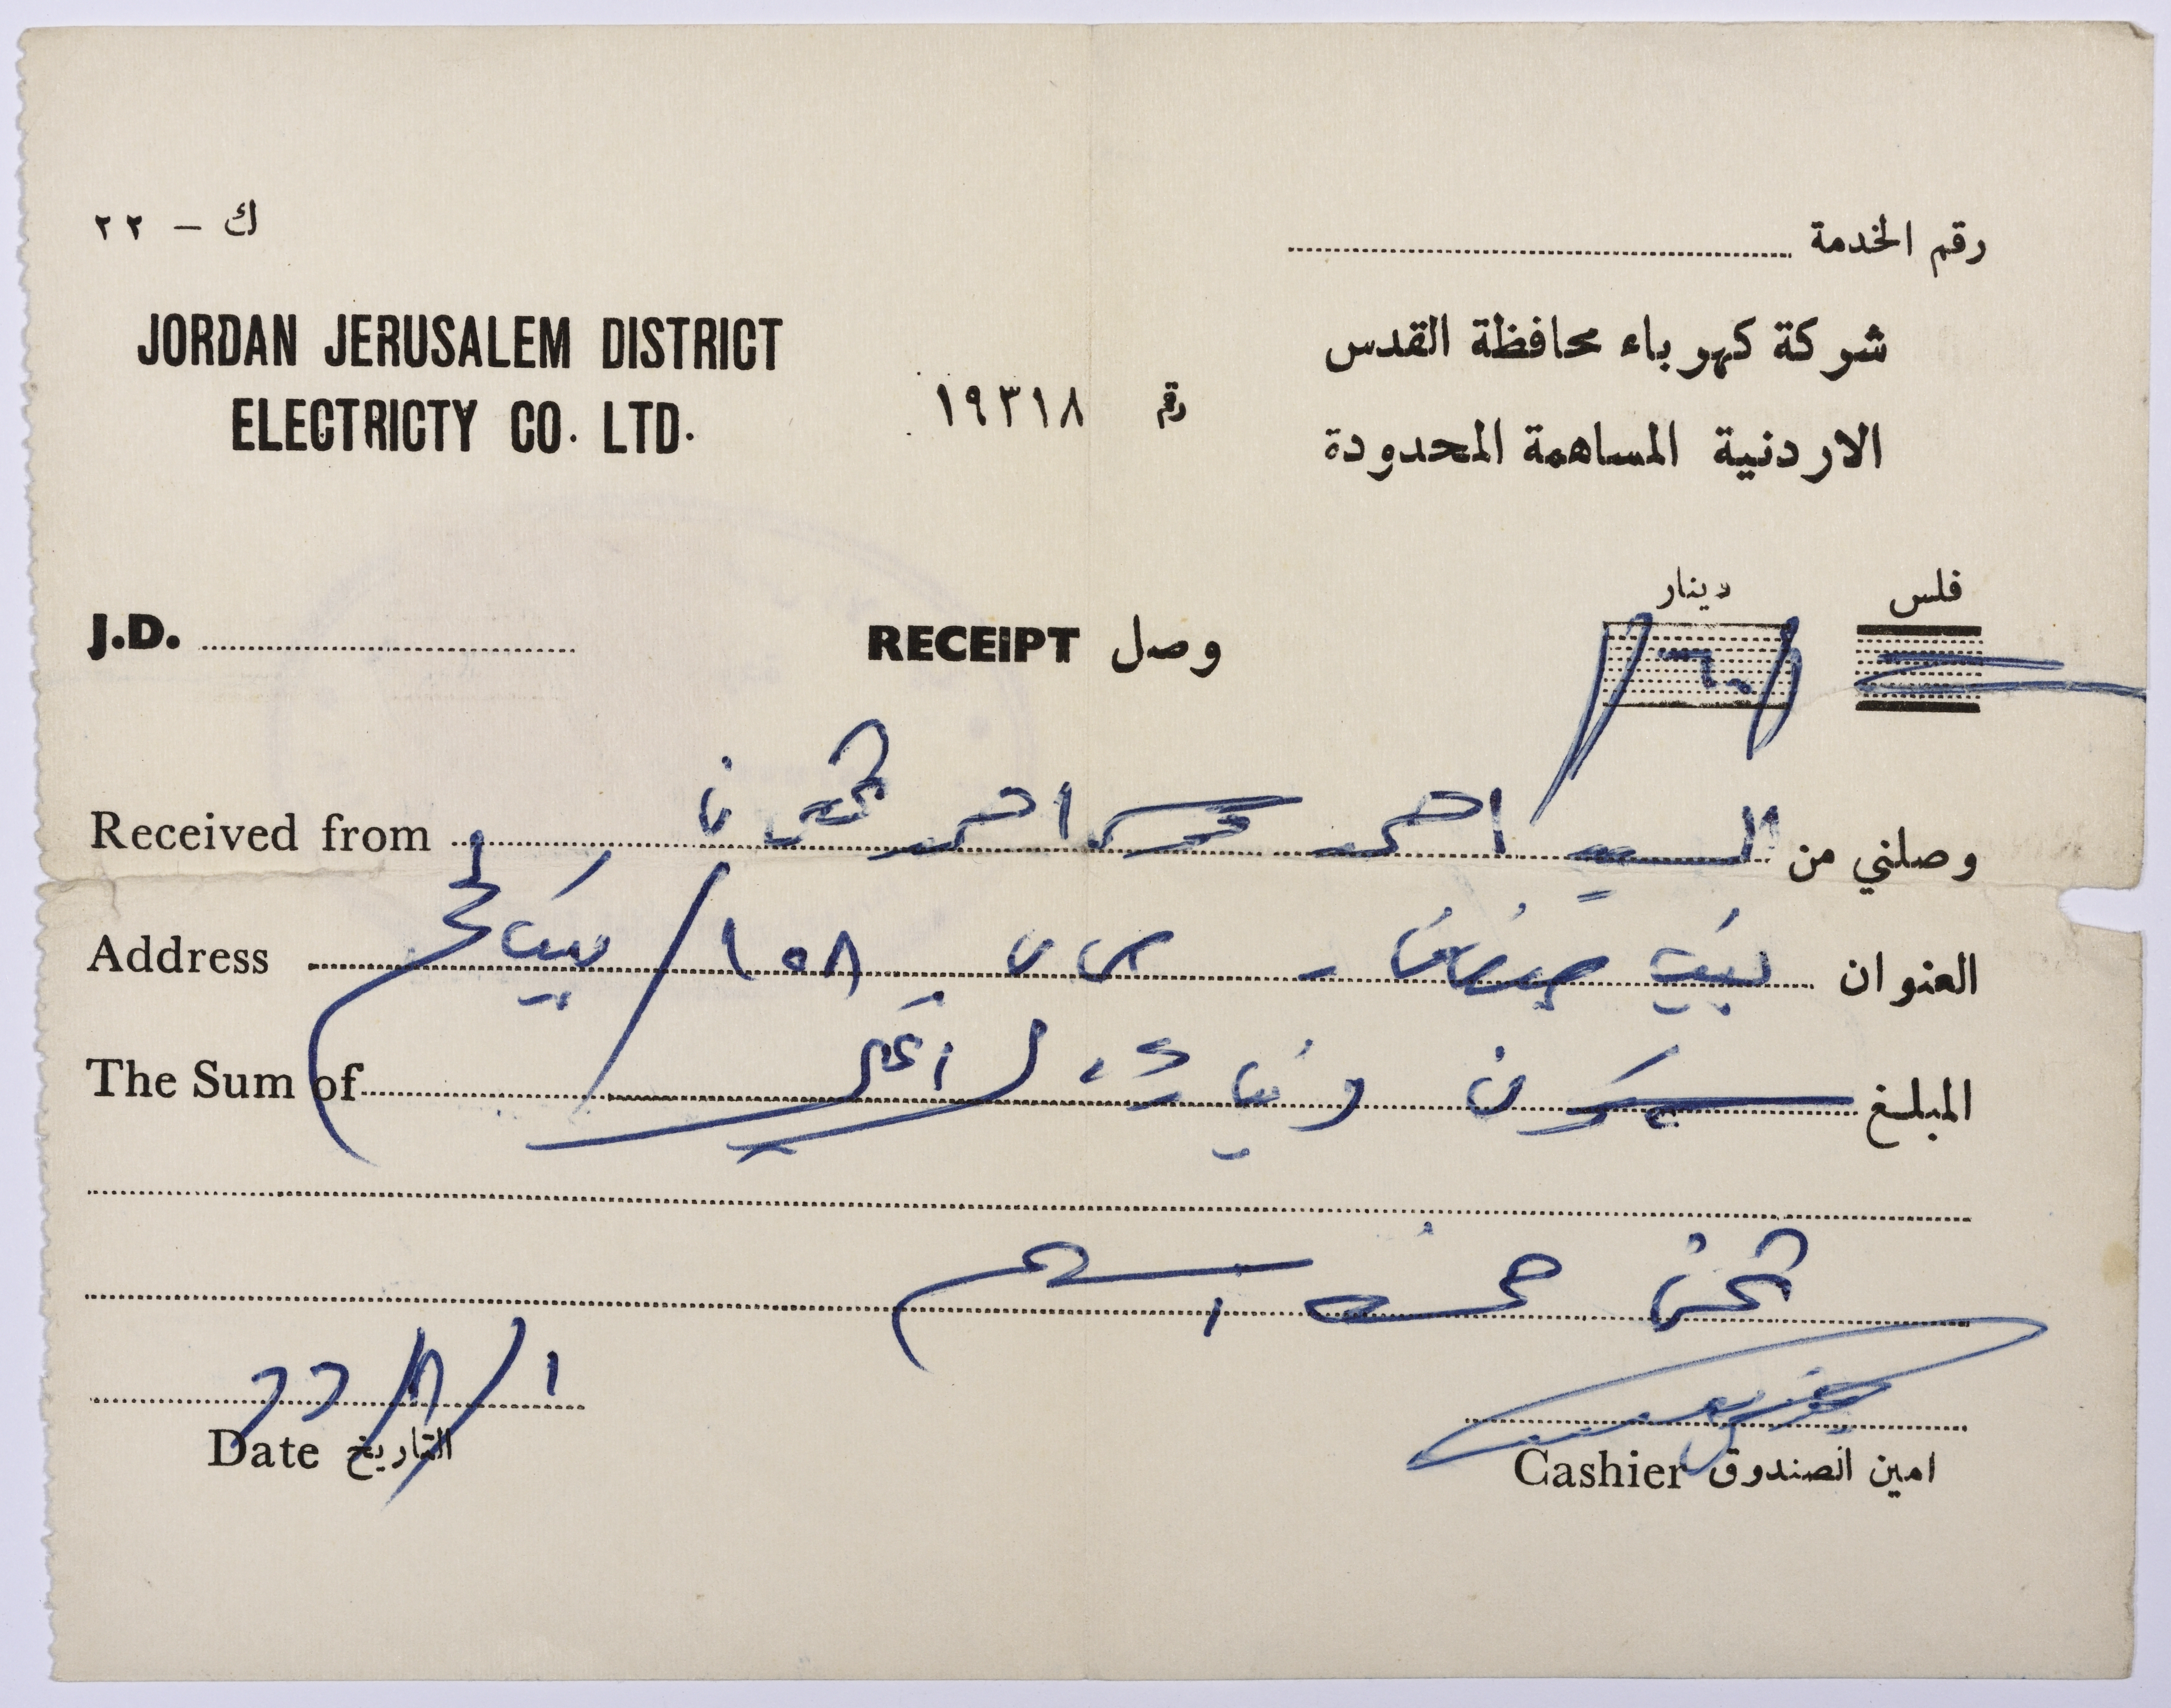 رقم الخدمة
ك - ٢٢
JORDAN JERUSALEM DISTRICT
ELECTRICTY CO. LTD.
رقم ١٩٣١٨
شركة كهرباء محافظة القدس
الاردنية المساهمة المحدودة
فلس دينار
J.D.
RECEIPT وصل
Received from السيد احمد محمد احمد وصلني من
Address بيت صفافا - ص ب ١٥٨ / بيت لحم العنوان
The Sum of ستون دينار لا غير المبلغ
ثمن خمسة اسهم
١ / ٨ / ٦٦
Date التاريخ
Cashier امين الصندوق